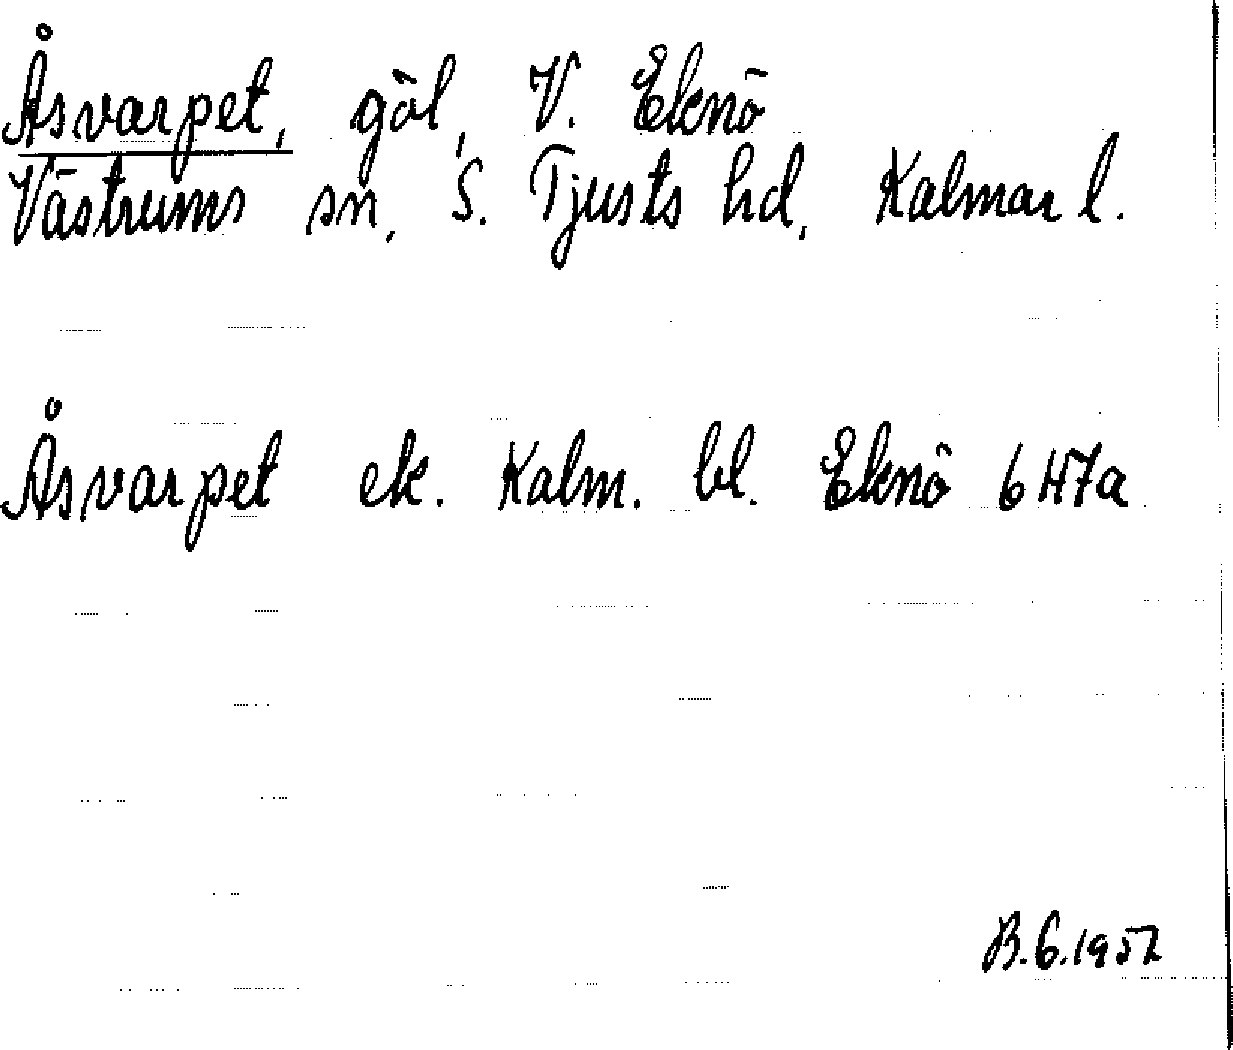 Åsvarpet, göl, V. Eknö
Västrums sn, S. Tjusts hd, Kalmar l.
Åsvarpet ek. Kalm. bl. Eknö 6H7a
B.G.1952